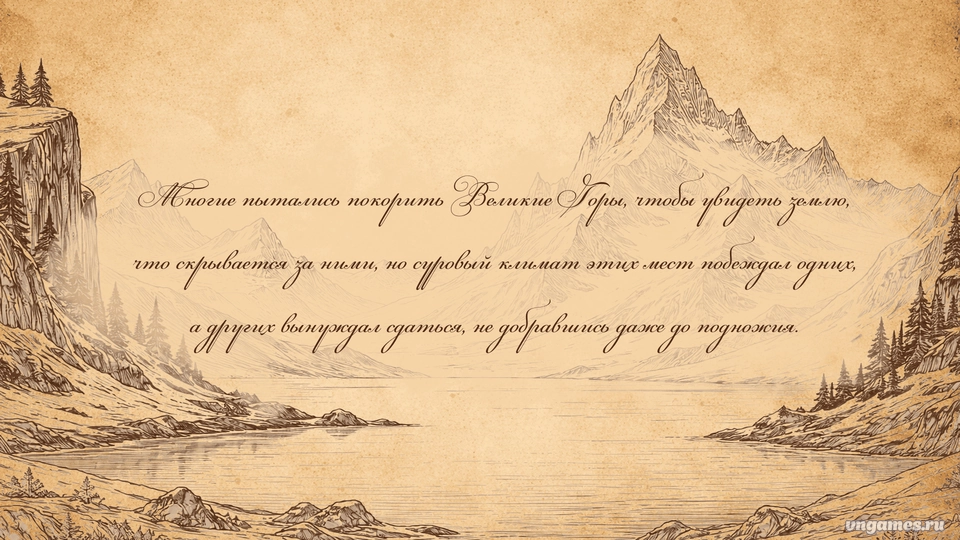 Многие пытались покорить Великие Горы, чтобы увидеть землю,
что скрывается за ними, но суровый климат этих мест побеждал одних,
а других вынуждал сдаться, не добравшись даже до подножия.
vngames.ru